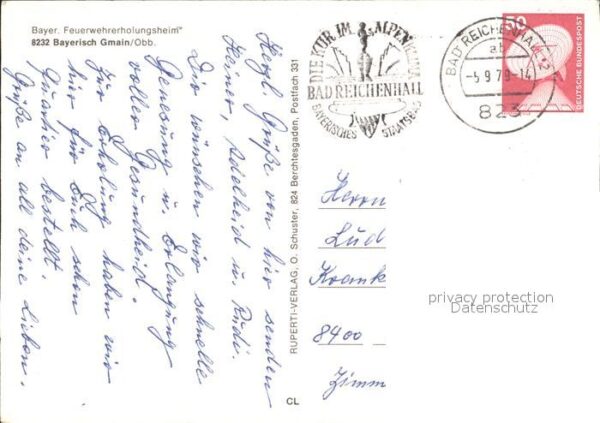 Bayer. Feuerwehrerholungsheim"
8232 Bayerisch Gmain/Obb.
Herzl. Grüße von hier senden
Heiner, Adelheid u. Rudi.
Dir wünschen wir schnelle
Genesung u. Erlangung
voller Gesundheid.
Für Erholung haben wir
hier für Euch schon
Quartier bestellt.
Grüße an all deine Lieben.
RUPERTI-VERLAG, O. Schuster, 824 Berchtesgaden, Postfach 331
CL
DIE KUR IM ALPENKLIMA
BAD REICHENHALL
BAYERISCHES STAATSBAD
BAD REICHENHALL 2
ab
-5.9.79-14
823
50
DEUTSCHE BUNDESPOST
Herrn
Lud
Krank
8400
Zimm
privacy protection
Datenschutz